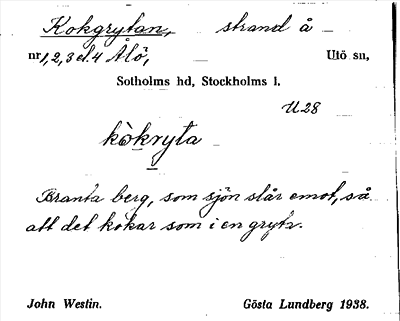 Kokgrytan, strand å
nr 1, 2, 3 el. 4 Ålö, Utö sn,
Sotholms hd, Stockholms l.
U 28
kòkryta
Branta berg, som sjön slår emot, så
att det kokar som i en gryta.
John Westin. Gösta Lundberg 1938.